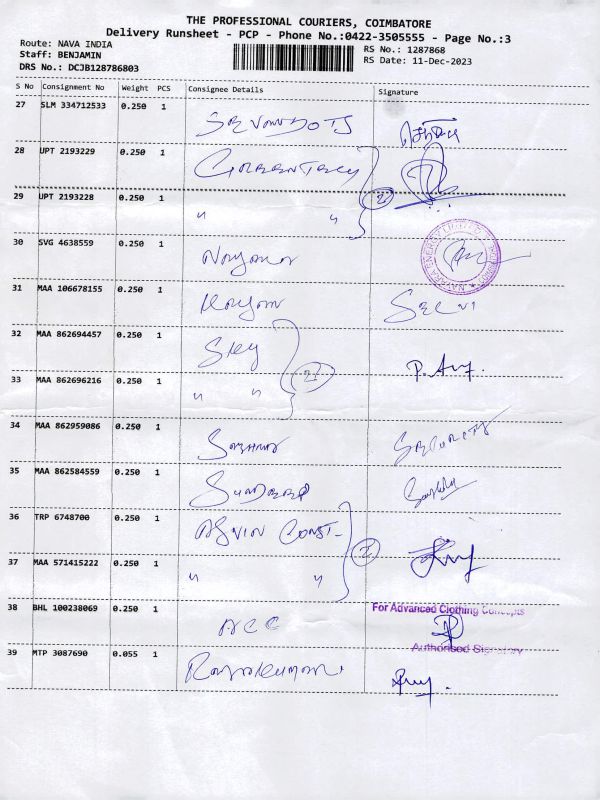 THE PROFESSIONAL COURIERS, COIMBATORE
Delivery Runsheet - PCP - Phone No.:0422-3505555 - Page No.:3
Route: NAVA INDIA
RS No.: 1287868
Staff: BENJAMIN
RS Date: 11-Dec-2023
DRS No.: DCJB128786803
S No Consignment No Weight PCS Consignee Details Signature
27 SLM 334712533 0.250 1
28 UPT 2193229 0.250 1
29 UPT 2193228 0.250 1 " "
2
30 SVG 4638559 0.250 1
31 MAA 106678155 0.250 1 SELVI
32 MAA 862694457 0.250 1 SKY
2
33 MAA 862696216 0.250 1 " "
34 MAA 862959086 0.250 1 SECURITY
35 MAA 862584559 0.250 1
36 TRP 6748700 0.250 1 ASVIN CONST-
2
37 MAA 571415222 0.250 1 " "
38 BHL 100238069 0.250 1 ACC
For Advanced Clothing Concepts
Authorised Signatory
39 MTP 3087690 0.055 1 Rajakumar.